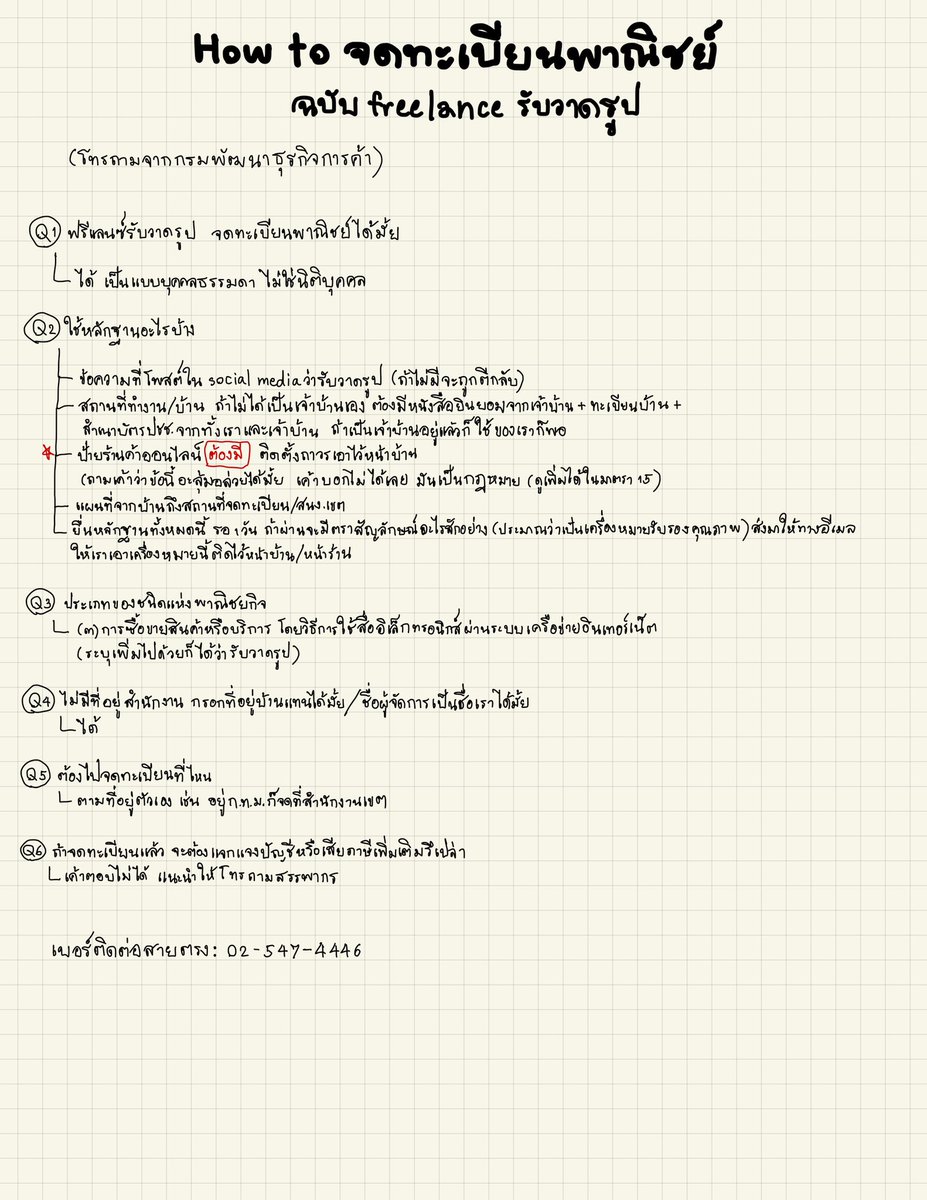 How to จดทะเบียนพาณิชย์
ฉบับ freelance รับวาดรูป
(โทรถามจากกรมพัฒนาธุรกิจการค้า)
Q1 ฟรีแลนซ์รับวาดรูป จดทะเบียนพาณิชย์ได้มั้ย
ได้ เป็นแบบบุคคลธรรมดา ไม่ใช่นิติบุคคล
Q2 ใช้หลักฐานอะไรบ้าง
ข้อความที่โพสต์ใน social media ว่ารับวาดรูป (ถ้าไม่มีจะถูกตีกลับ)
สถานที่ทำงาน/บ้าน ถ้าไม่ได้เป็นเจ้าบ้านเอง ต้องมีหนังสือยินยอมจากเจ้าบ้าน + ทะเบียนบ้าน +
สำเนาบัตรปชช. จากทั้งเราและเจ้าบ้าน ถ้าเป็นเจ้าบ้านอยู่แล้วก็ใช้ของเราก็พอ
* ป้ายร้านค้าออนไลน์ ต้องมี ติดตั้งถาวรเอาไว้หน้าบ้าน
(ถามเค้าว่าข้อนี้อะลุ่มอล่วยได้มั้ย เค้าบอกไม่ได้เลย มันเป็นกฎหมาย (ดูเพิ่มได้ในมาตรา 15)
แผนที่จากบ้านถึงสถานที่จดทะเบียน/สนง.เขต
ยื่นหลักฐานทั้งหมดนี้ รอ 1 วัน ถ้าผ่านจะมีตราสัญลักษณ์อะไรสักอย่าง (ประมาณว่าเป็นเครื่องหมายรับรองคุณภาพ) ส่งมาให้ทางอีเมล
ให้เราเอาเครื่องหมายนี้ติดไว้หน้าบ้าน/หน้าร้าน
Q3 ประเภทของชนิดแห่งพาณิชยกิจ
(๓) การซื้อขายสินค้าหรือบริการ โดยวิธีการใช้สื่ออิเล็กทรอนิกส์ผ่านระบบเครือข่ายอินเทอร์เน็ต
(ระบุเพิ่มไปด้วยก็ได้ว่ารับวาดรูป)
Q4 ไม่มีที่อยู่สำนักงาน กรอกที่อยู่บ้านแทนได้มั้ย/ชื่อผู้จัดการเป็นชื่อเราได้มั้ย
ได้
Q5 ต้องไปจดทะเบียนที่ไหน
ตามที่อยู่ตัวเอง เช่น อยู่ก.ท.ม.ก็จดที่สำนักงานเขต
Q6 ถ้าจดทะเบียนแล้ว จะต้องแจกแจงบัญชีหรือเสียภาษีเพิ่มเติมรึเปล่า
เค้าตอบไม่ได้ แนะนำให้โทรถามสรรพากร
เบอร์ติดต่อสายตรง: 02-547-4446